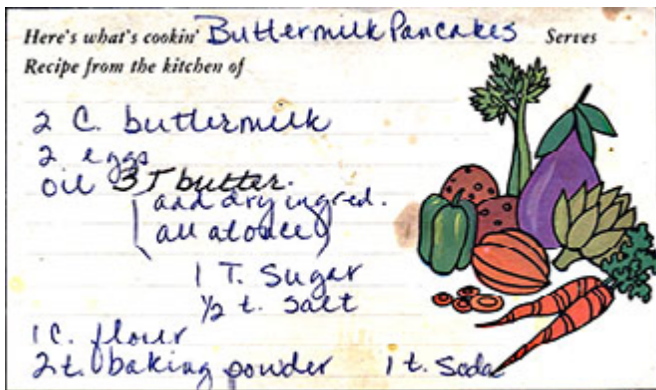 Here's what's cookin' Buttermilk Pancakes Serves
Recipe from the kitchen of
2 C. buttermilk
2 eggs
oil 3 T butter.
(add dry ingred.
all at once)
1 T. Sugar
1/2 t. Salt
1 C. flour
2 t. baking powder 1 t. Soda